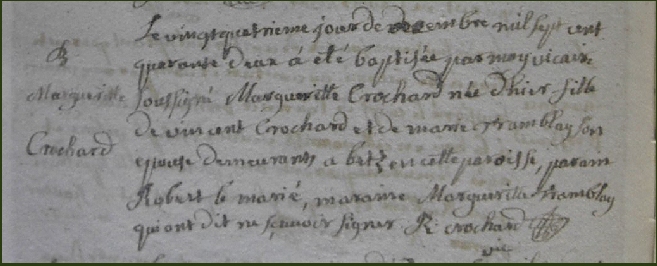 Le vingtquatrieme jour de decembre mil sept cent
quarante deux á eté baptisée par moy vicaire
B
Margueritte
soussigné Margueritte Crochard née d'hier fille
de vincent Crochard et de marie tramblay son
Crochard
epouse demeurants a betz en cette paroisse, parain
Robert le marié, maraine Marguerite tramblay
qui ont dit ne sçavoir signer R crochard
vic